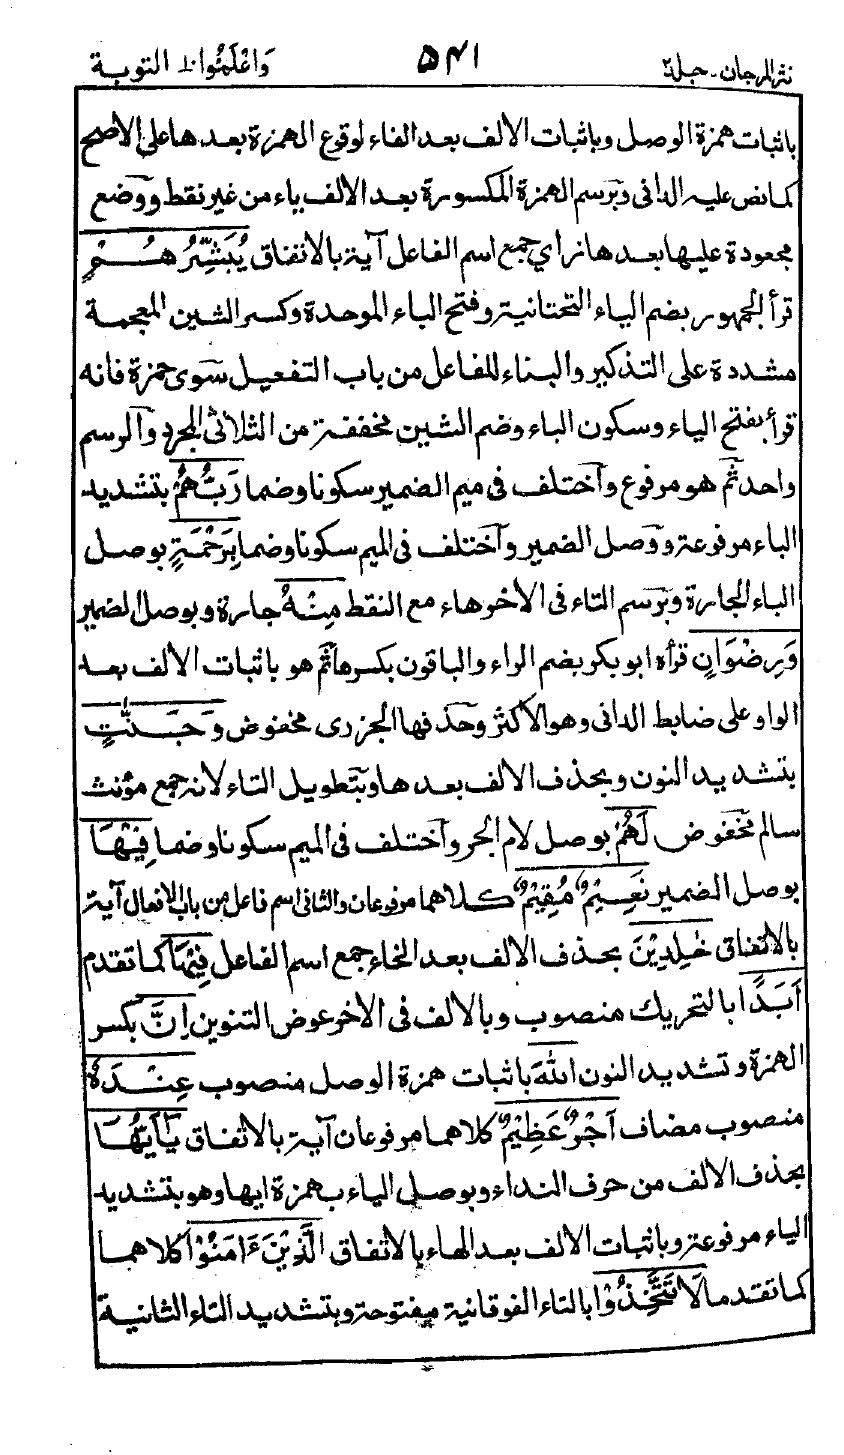 نثر المرجان - جلد٢ ٥٤١ وَاعْلَمُوْا ط التوبة
باثبات همزة الوصل وباثبات الالف بعد الفاء لوقوع الهمزة بعدها على الاصح
كما نص عليه الدانى وبرسم الهمزة المكسورة بعد الالف ياء من غير نقط ووضع
مجعودة عليها بعدها زاي جمع اسم الفاعل آية بالاتفاق يُبَشِّرُهُمْ
قرأ الجمهور بضم الياء التحتانية وفتح الباء الموحدة وكسر الشين المعجمة
مشددة على التذكير والبناء للفاعل من باب التفعيل سوى حمزة فانه
قرأ بفتح الياء وسكون الباء وضم الشين مخففة من الثلاثى المجرد والرسم
واحد ثم هو مرفوع واختلف فى ميم الضمير سكونا وضما رَبُّهُمْ بتشديد
الباء مرفوعة ووصل الضمير واختلف فى الميم سكونا وضما بِرَحْمَةٍ بوصل
الباء الجارة وبرسم التاء فى الاخر هاء مع النقط مِنْهُ جارة وبوصل الضمير
وَرِضْوَانٍ قرأه ابو بكر بضم الراء والباقون بكسرها ثم هو باثبات الالف بعد
الواو على ضابط الدانى وهو الأكثر وحذفها الجزرى مخفوض وَجَنّٰتٍ
بتشديد النون وبحذف الالف بعدها وبتطويل التاء لانه جمع مؤنث
سالم مخفوض لَهُمْ بوصل لام الجر واختلف فى الميم سكونا وضما فِيْهَا
بوصل الضمير نَعِيْمٌ مُّقِيْمٌ كلاهما مرفوعان والثانى اسم فاعل من باب الافعال آية
بالاتفاق خٰلِدِيْنَ بحذف الالف بعد الخاء جمع اسم الفاعل فِيْهَا كما تقدم
اَبَدًا بالتحريك منصوب وبالالف فى الاخر عوض التنوين اِنَّ بكسر
الهمزة وتشديد النون اللهَ باثبات همزة الوصل منصوب عِنْدَهُ
منصوب مضاف اَجْرٌ عَظِيْمٌ كلاهما مرفوعان آية بالاتفاق يٰٓاَيُّهَا
بحذف الالف من حرف النداء وبوصل الياء بهمزة ايها وهو بتشديد
الياء مرفوعة وباثبات الالف بعد الهاء بالاتفاق الَّذِيْنَ ءَامَنُوْا كلاهما
كما تقدما لَا تَتَّخِذُوْا بالتاء الفوقانية مفتوحة وبتشديد التاء الثانية